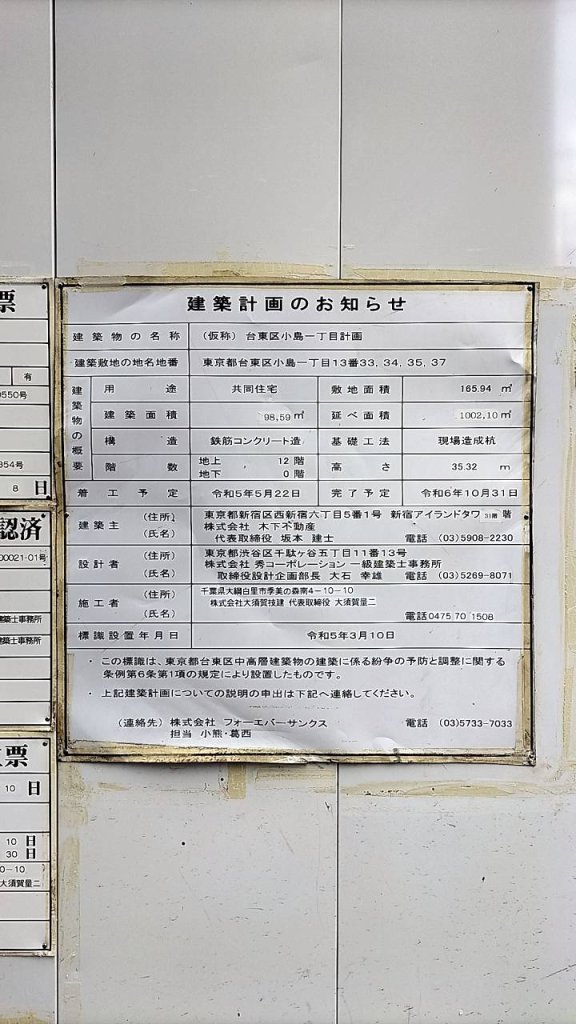 建築計画のお知らせ
建築物の名称 （仮称）台東区小島一丁目計画
建築敷地の地名地番 東京都台東区小島一丁目13番33, 34, 35, 37
建築物の概要
用途 共同住宅 敷地面積 165.94 ㎡
建築面積 98.59㎡ 延べ面積 1002.10㎡
構造 鉄筋コンクリート造 基礎工法 現場造成杭
階数 地上 12 階 高さ 35.32 m
地下 0 階
着工予定 令和5年5月22日 完了予定 令和6年10月31日
建築主 （住所） 東京都新宿区西新宿六丁目5番1号 新宿アイランドタワ 31階 階
株式会社 木下不動産
（氏名） 代表取締役 坂本 建士 電話 （03）5908-2230
設計者 （住所） 東京都渋谷区千駄ヶ谷五丁目11番13号
株式会社 秀コーポレーション 一級建築士事務所
（氏名） 取締役設計企画部長 大石 幸雄 電話 （03）5269-8071
施工者 （住所） 千葉県大網白里市季美の森南4-10-10
（氏名） 株式会社大須賀技建 代表取締役 大須賀量二
電話0475 70 1508
標識設置年月日 令和5年3月10日
・ この標識は、東京都台東区中高層建築物の建築に係る紛争の予防と調整に関する
条例第6条第1項の規定により設置したものです。
・ 上記建築計画についての説明の申出は下記へ連絡してください。
（連絡先） 株式会社 フォーエバーサンクス 電話 （03）5733-7033
担当 小熊・葛西
票
有
0550号
354号
8 日
認済
00021-01号
建築士事務所
建築士事務所
票
10 日
10 日
30 日
0-10
大須賀量二